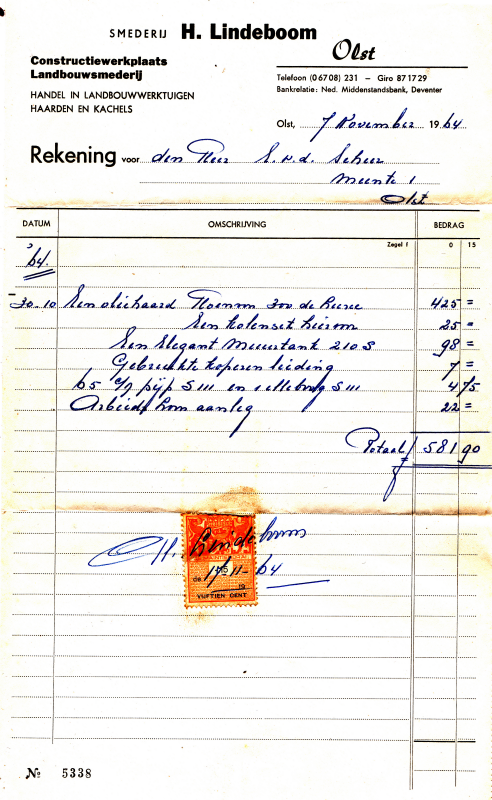 SMEDERIJ H. Lindeboom
Olst
Constructiewerkplaats
Landbouwsmederij
HANDEL IN LANDBOUWWERKTUIGEN
HAARDEN EN KACHELS
Telefoon (06708) 231 – Giro 871729
Bankrelatie: Ned. Middenstandsbank, Deventer
Olst, 7 November 1964
Rekening voor den Heer E. v. d. Scheer
Meente 1
Olst
DATUM OMSCHRIJVING BEDRAG
Zegel f 0 15
'64
30-10 Een oliehaard 425 =
Een kolenset hierom 25 =
Een Elegant Meurtank 210 S 98 =
Gebruikte koperen leiding 7 =
65 c/m pijp S 111 en S 111 4 75
Arbeid aanleg 22 =
Totaal f 581 90
H. Lindeboom
de 17/11-64
19
VIJFTIEN CENT
No 5338